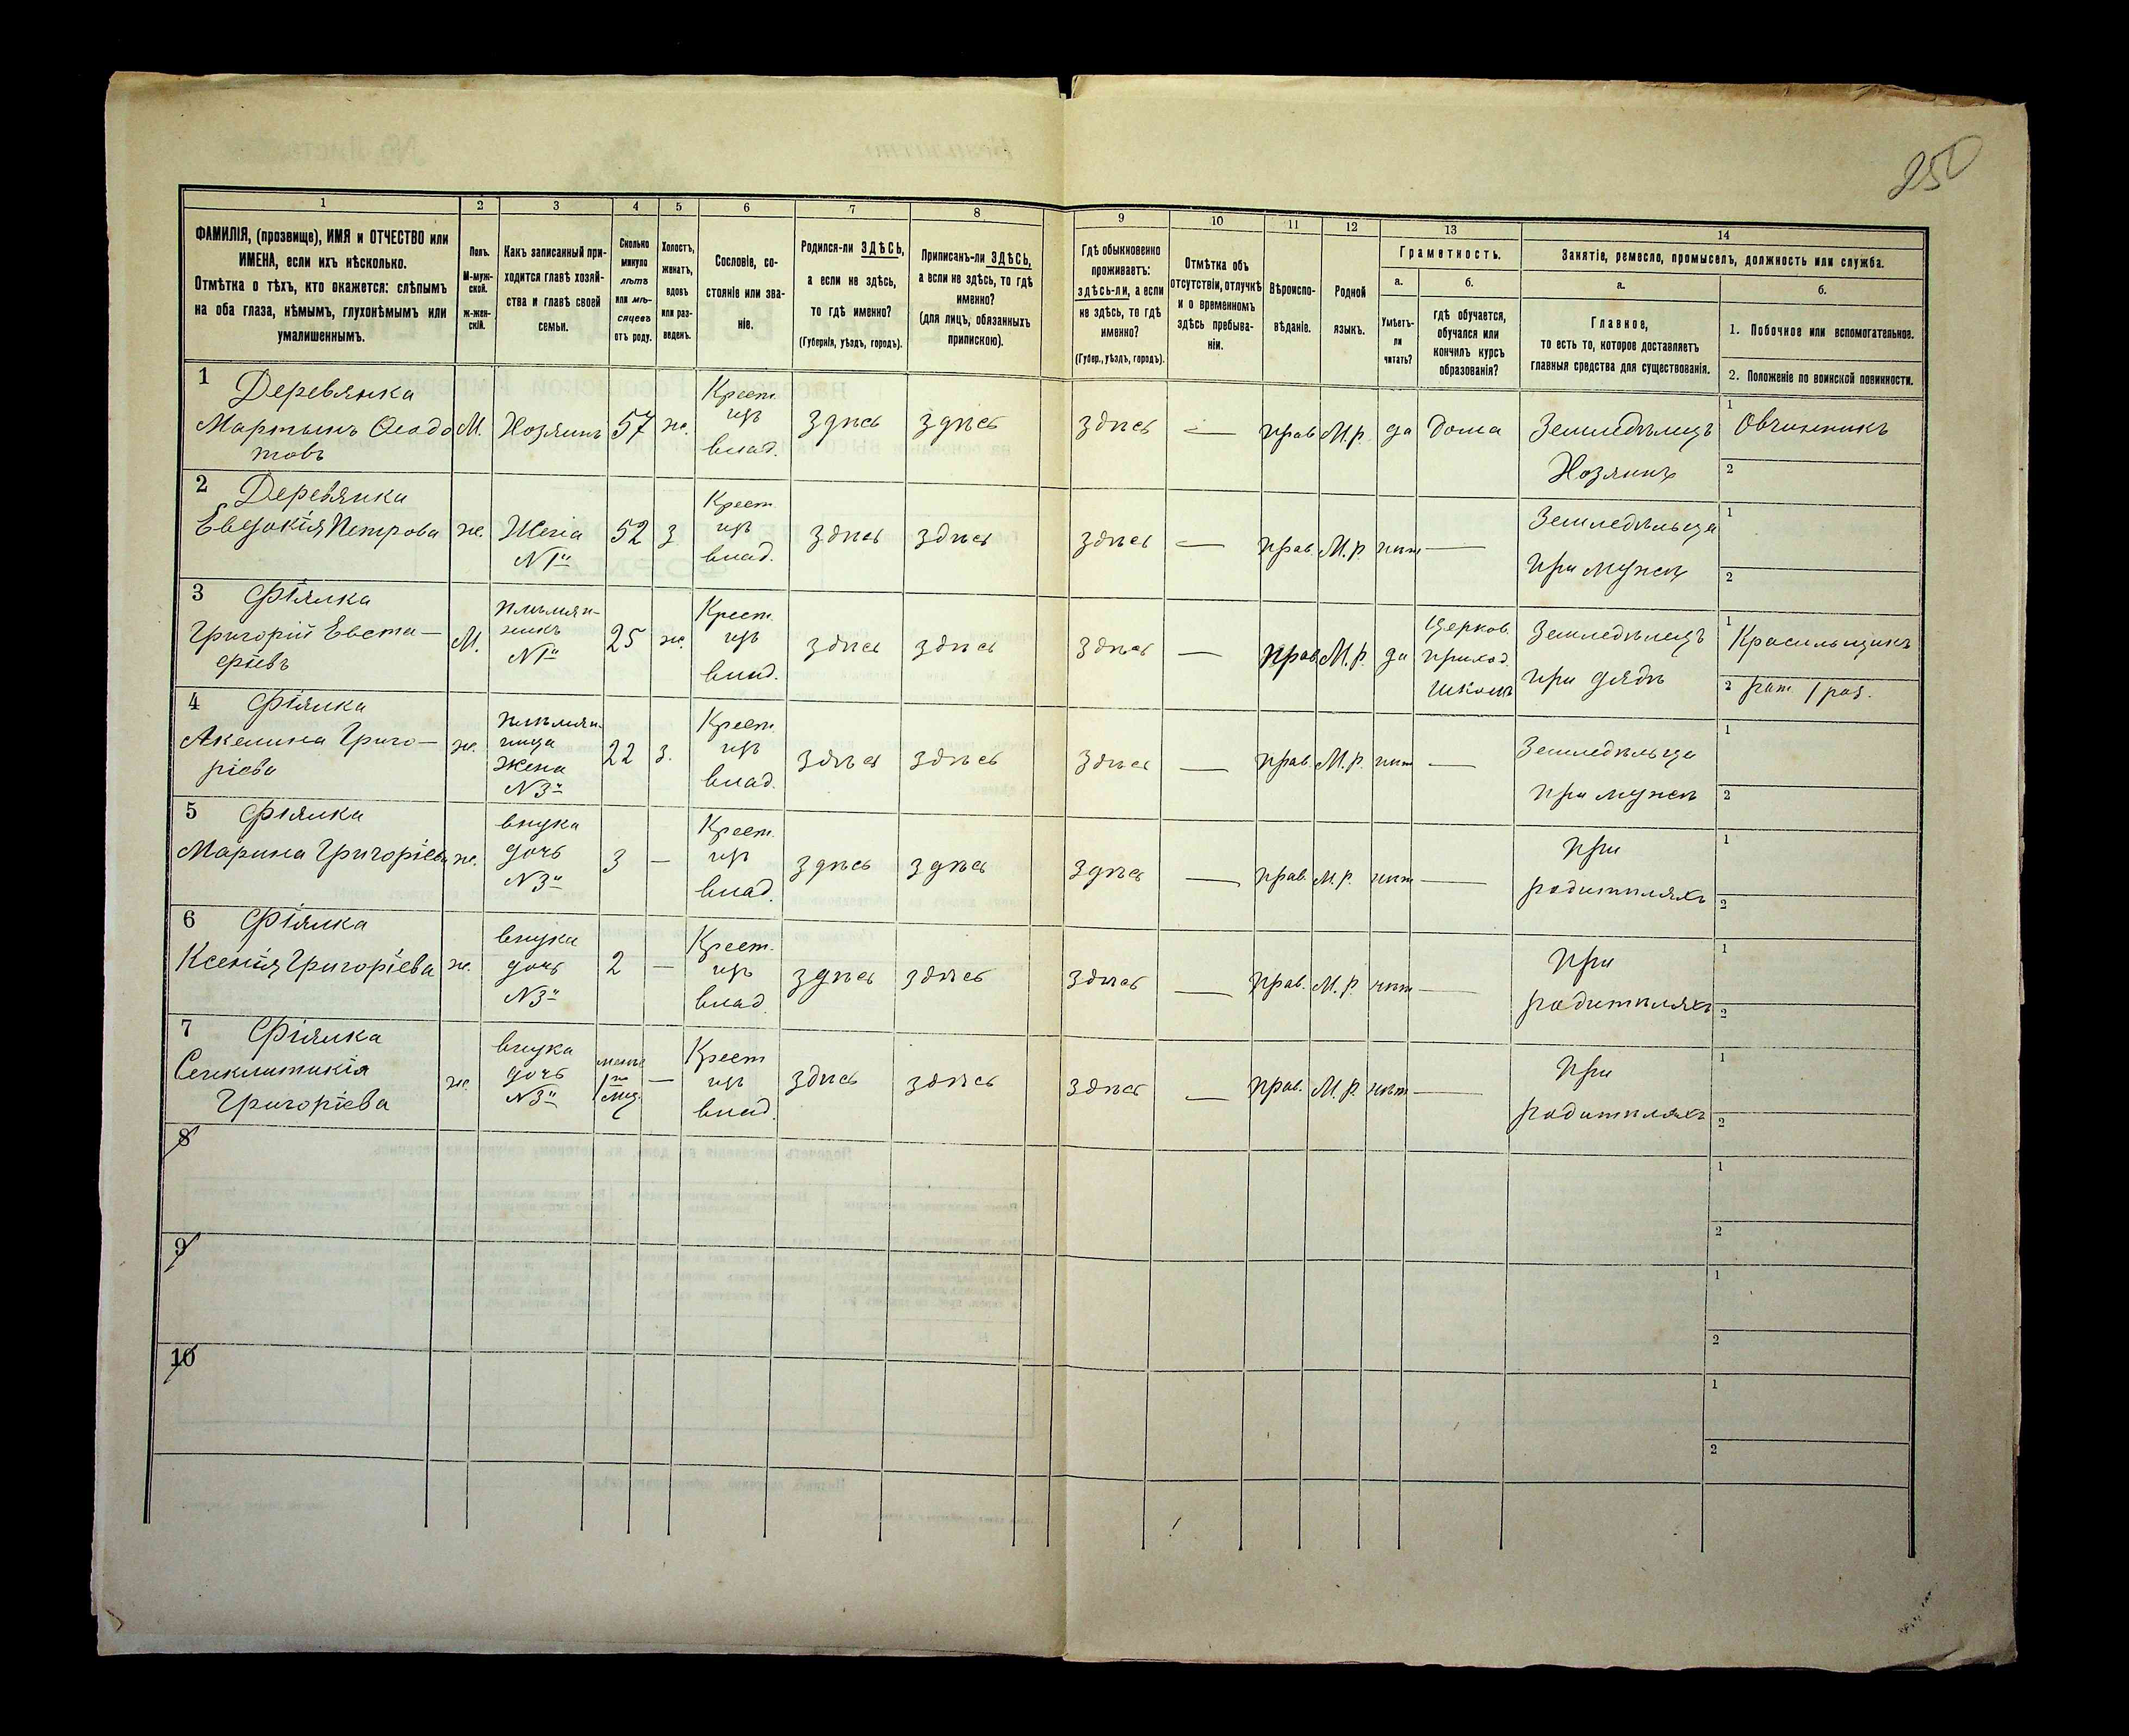 250
1 2 3 4 5 6 7 8 9 10 11 12 13 14
ФАМИЛІЯ, (прозвище), ИМЯ и ОТЧЕСТВО или
ИМЕНА, если ихъ нѣсколько.
Отмѣтка о тѣхъ, кто окажется: слѣпымъ
на оба глаза, нѣмымъ, глухонѣмымъ или
умалишеннымъ.
Полъ.
М-муж-
ской.
ж-жен-
скій.
Какъ записанный при-
ходится главѣ хозяй-
ства и главѣ своей
семьи.
Сколько
минуло
лѣтъ
или мѣ-
сяцевъ
отъ роду.
Холостъ,
женатъ,
вдовъ
или раз-
веденъ.
Сословіе, со-
стояніе или зва-
ніе.
Родился-ли ЗДѢСЬ,
а если не здѣсь,
то гдѣ именно?
(Губернія, уѣздъ, городъ).
Приписанъ-ли ЗДѢСЬ,
а если не здѣсь, то гдѣ
именно?
(для лицъ, обязанныхъ
припискою).
Гдѣ обыкновенно
проживаетъ:
здѣсь-ли, а если
не здѣсь, то гдѣ
именно?
(Губер., уѣздъ, городъ).
Отмѣтка объ
отсутствіи, отлучкѣ
и о временномъ
здѣсь пребыва-
ніи.
Вѣроиспо-
вѣданіе.
Родной
языкъ.
Грамотность.
а.
Умѣетъ-
ли
читать?
б.
гдѣ обучается,
обучался или
кончилъ курсъ
образованія?
Занятіе, ремесло, промыселъ, должность или служба.
а.
Главное,
то есть то, которое доставляетъ
главныя средства для существованія.
б.
1. Побочное или вспомогательное.
2. Положеніе по воинской повинности.
1 Деревянка
Мартынъ Ѳеодо
товъ
М.
Хозяинъ
57
ж.
Крест.
изъ
влад.
здѣсь
здѣсь
здѣсь
—
прав
М.р.
да
дома
Земледѣлецъ
Хозяинъ
1 Овчинникъ
2
2 Деревянка
Евдокія Петрова
ж.
Жена
N1"
52
з
Крест
изъ
влад.
здѣсь
здѣсь
здѣсь
—
прав.
М.р
нѣт
—
Земледѣльца
при мужѣ
1
2
3 Фіялка
Григорій Евста-
фіевъ
М.
племян-
никъ
N1"
25
ж.
Крест.
изъ
влад.
здѣсь
здѣсь
здѣсь
—
прав
М.р.
да
Церков.
приход.
школѣ
Земледѣлецъ
при дядѣ
1 Красильщикъ
2 рат. 1 раз.
4 Фіялка
Акелина Григо-
ріева
ж.
племян.
ница
жена
N3"
22
з.
Крест.
изъ
влад.
здѣсь
здѣсь
здѣсь
—
прав.
М.р.
нѣт
—
Земледѣльца
при мужѣ
1
2
5 Фіялка
Марина Григоріева
ж.
внука
дочь
N3"
3
—
Крест.
изъ
влад.
здѣсь
здѣсь
здѣсь
—
прав.
М.р.
нѣт
—
при
родителяхъ
1
2
6 Фіялка
Ксенія Григоріева
ж.
внука
дочь
N3"
2
—
Крест.
изъ
влад
здѣсь
здѣсь
здѣсь
—
прав.
М.р.
нѣт
—
при
родителяхъ
1
2
7 Фіялка
Сенклитикія
Григоріева
ж.
внука
дочь
N3"
1
—
Крест
изъ
влад.
здѣсь
здѣсь
здѣсь
—
прав.
М.р.
нѣт
—
при
родителяхъ
1
2
8
1
2
9
1
2
10
1
2